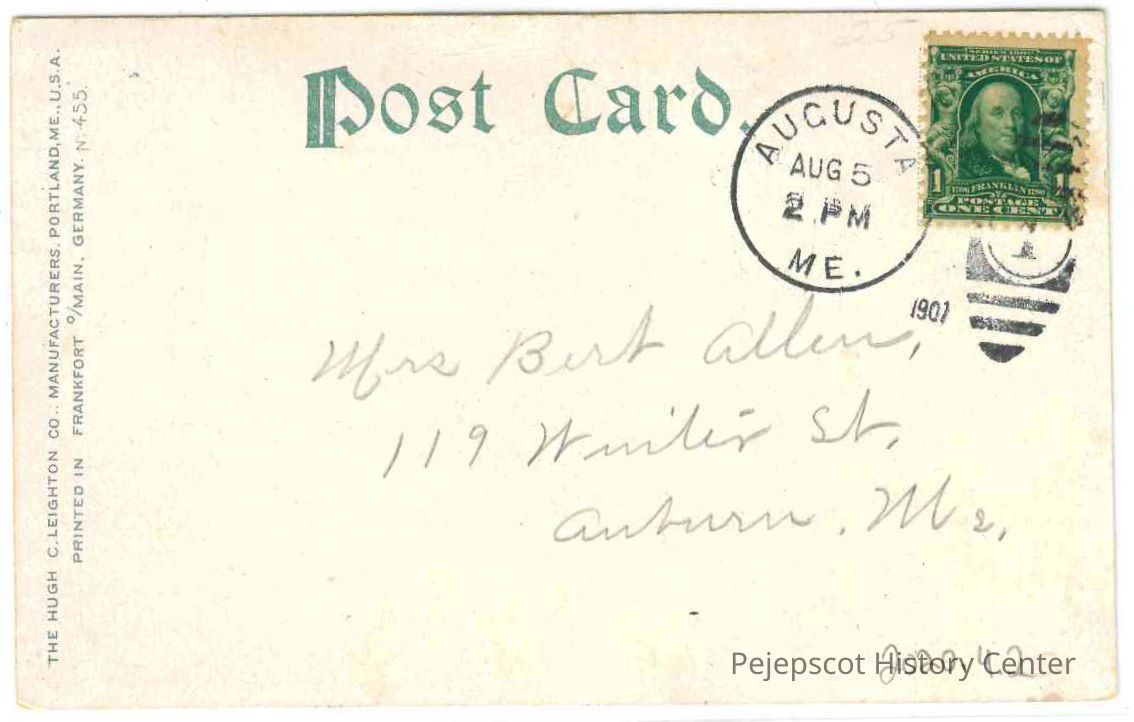 Post Card.
AUGUSTA
AUG 5
2 PM
ME.
1907
SERIES 1902
UNITED STATES OF
AMERICA
1706 FRANKLIN 1790
1 1
POSTAGE
ONE CENT
1
Mrs Bert Allen,
119 Winter St.
Auburn, Me,
THE HUGH C. LEIGHTON CO., MANUFACTURERS, PORTLAND, ME., U.S.A.
PRINTED IN FRANKFORT o/MAIN, GERMANY. No 455.
Pejepscot History Center